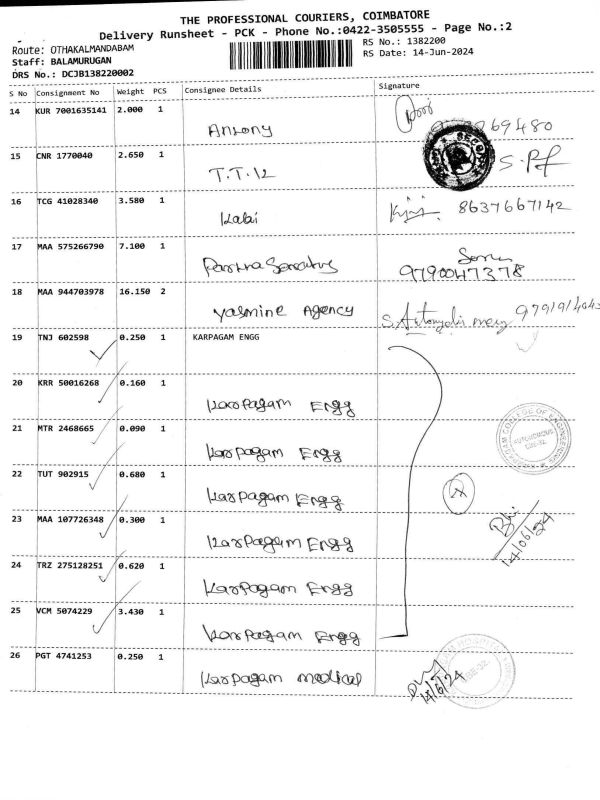 THE PROFESSIONAL COURIERS, COIMBATORE
Delivery Runsheet - PCK - Phone No.:0422-3505555 - Page No.:2
Route: OTHAKALMANDABAM
RS No.: 1382200
Staff: BALAMURUGAN
RS Date: 14-Jun-2024
DRS No.: DCJB138220002
S No Consignment No Weight PCS Consignee Details Signature
14 KUR 7001635141 2.000 1
Antony 69480
15 CNR 1770040 2.650 1
T.T.K
16 TCG 41028340 3.580 1
Kalai 8637667142
17 MAA 575266790 7.100 1
9790047378
18 MAA 944703978 16.150 2
Yasmine Agency
19 TNJ 602598 0.250 1 KARPAGAM ENGG
20 KRR 50016268 0.160 1
Karpagam Engg
21 MTR 2468665 0.090 1
Karpagam Engg
22 TUT 902915 0.680 1
Karpagam Engg
23 MAA 107726348 0.300 1
Karpagam Engg
24 TRZ 275128251 0.620 1
Karpagam Engg
25 VCM 5074229 3.430 1
Karpagam Engg
26 PGT 4741253 0.250 1
Karpagam medical
KARPAGAM COLLEGE OF ENGINEERING
AUTONOMOUS
CBE-32
14/06/24
14/6/24